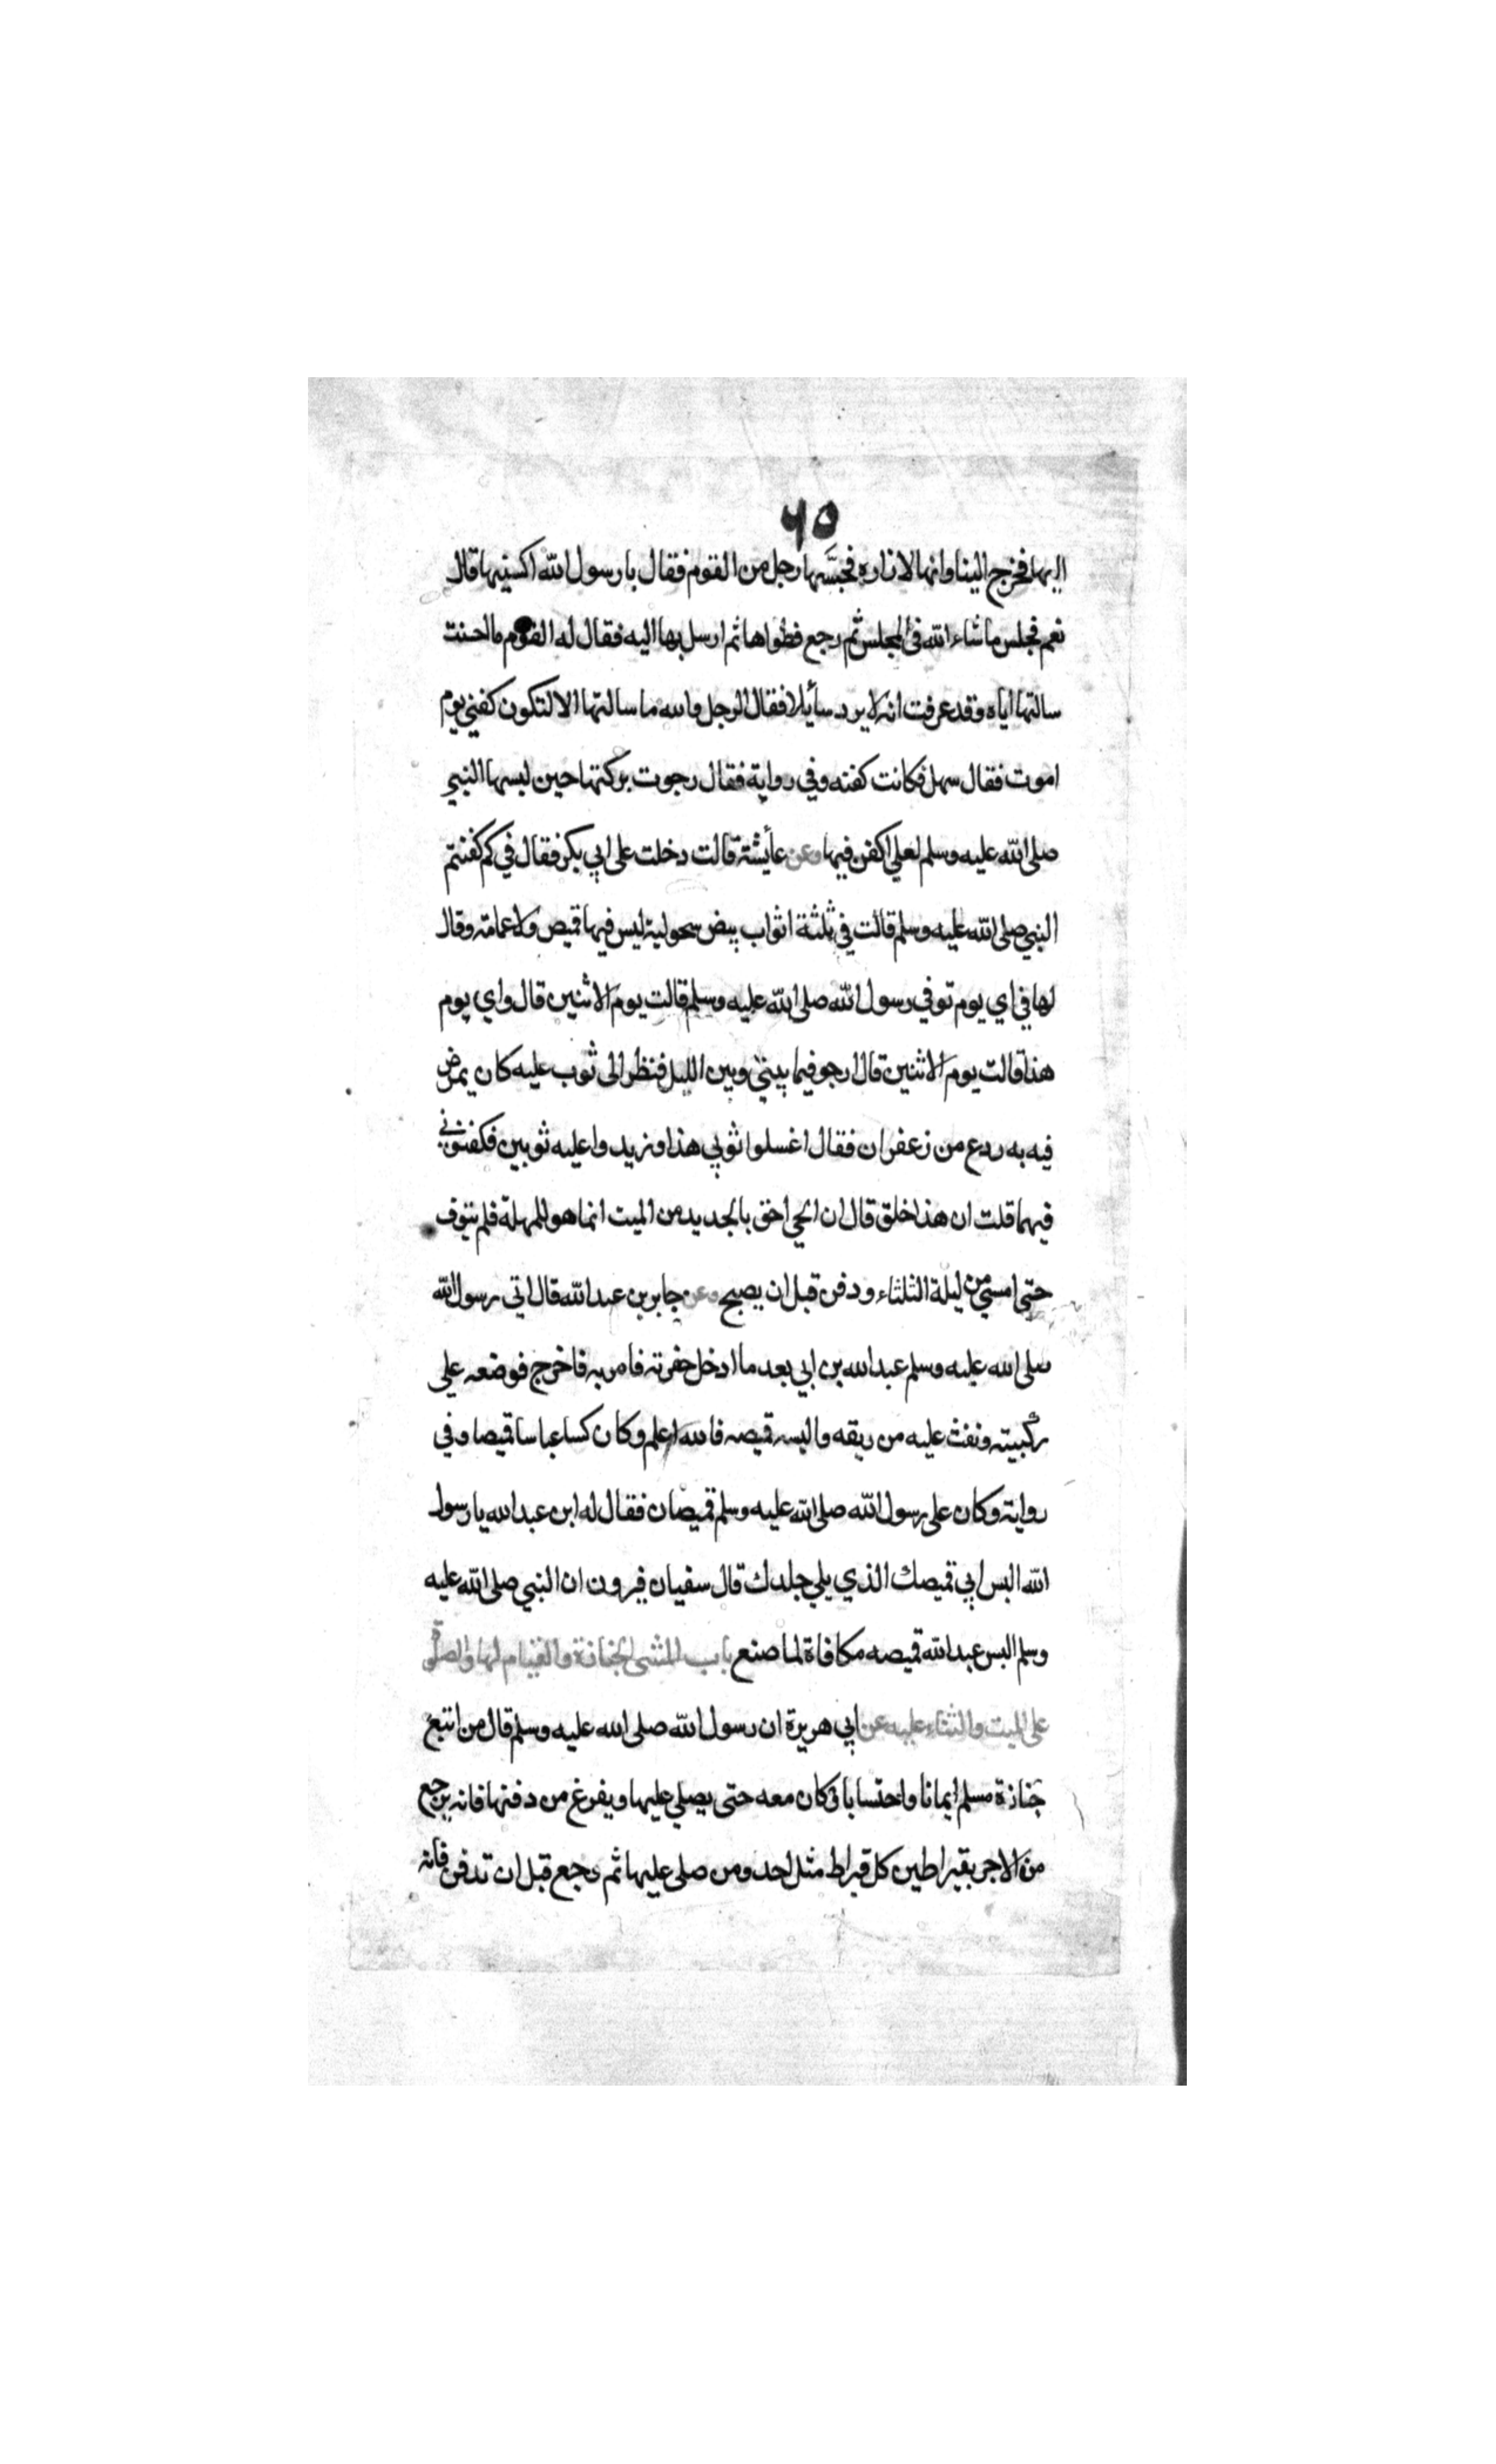 ٦٥
اليها فخرج الينا وانها لازاره فجسّها رجل من القوم فقال يا رسول الله اكسنيها قال
نعم فجلس ما شاء الله في المجلس ثم رجع فطواها ثم ارسل بها اليه فقال له القوم ما احسنت
سالتها اياه وقد عرفت انه لا يرد سائلا فقال الرجل والله ما سالتها الا لتكون كفني يوم
اموت فقال سهل فكانت كفنه وفي رواية فقال رجوت بركتها حين لبسها النبي
صلى الله عليه وسلم لعلي اكفن فيها وعن عائشة قالت دخلت على ابي بكر فقال في كم كفنتم
النبي صلى الله عليه وسلم قالت في ثلثة اثواب بيض سحولية ليس فيها قميص ولا عمامة وقال
لها في اي يوم توفي رسول الله صلى الله عليه وسلم قالت يوم الاثنين قال واي يوم
هذا قالت يوم الاثنين قال ارجو فيما بيني وبين الليل فنظر الى ثوب عليه كان يمرض
فيه به ردع من زعفران فقال اغسلوا ثوبي هذا وزيدوا عليه ثوبين فكفنوني
فيهما قلت ان هذا خلق قال ان الحي احق بالجديد من الميت انما هو للمهلة فلم يتوف
حتى امسى من ليلة الثلثاء ودفن قبل ان يصبح وعن جابر بن عبد الله قال اتى رسول الله
صلى الله عليه وسلم عبد الله بن ابي بعد ما ادخل حفرته فامر به فاخرج فوضعه على
ركبيته ونفث عليه من ريقه والبسه قميصه فالله اعلم وكان كسا عباسا قميصا وفي
رواية وكان على رسول الله صلى الله عليه وسلم قميصان فقال له ابن عبد الله يا رسول
الله البس ابي قميصك الذي يلي جلدك قال سفيان فيرون ان النبي صلى الله عليه
وسلم البس عبد الله قميصه مكافاة لما صنع باب المشي الجنازة والقيام لها والصلوة
على الميت والثناء عليه عن ابي هريرة ان رسول الله صلى الله عليه وسلم قال من اتبع
جنازة مسلم ايمانا واحتسابا وكان معه حتى يصلي عليها ويفرغ من دفنها فانه يرجع
من الاجر بقيراطين كل قيراط مثل احد ومن صلى عليها ثم رجع قبل ان تدفن فانه